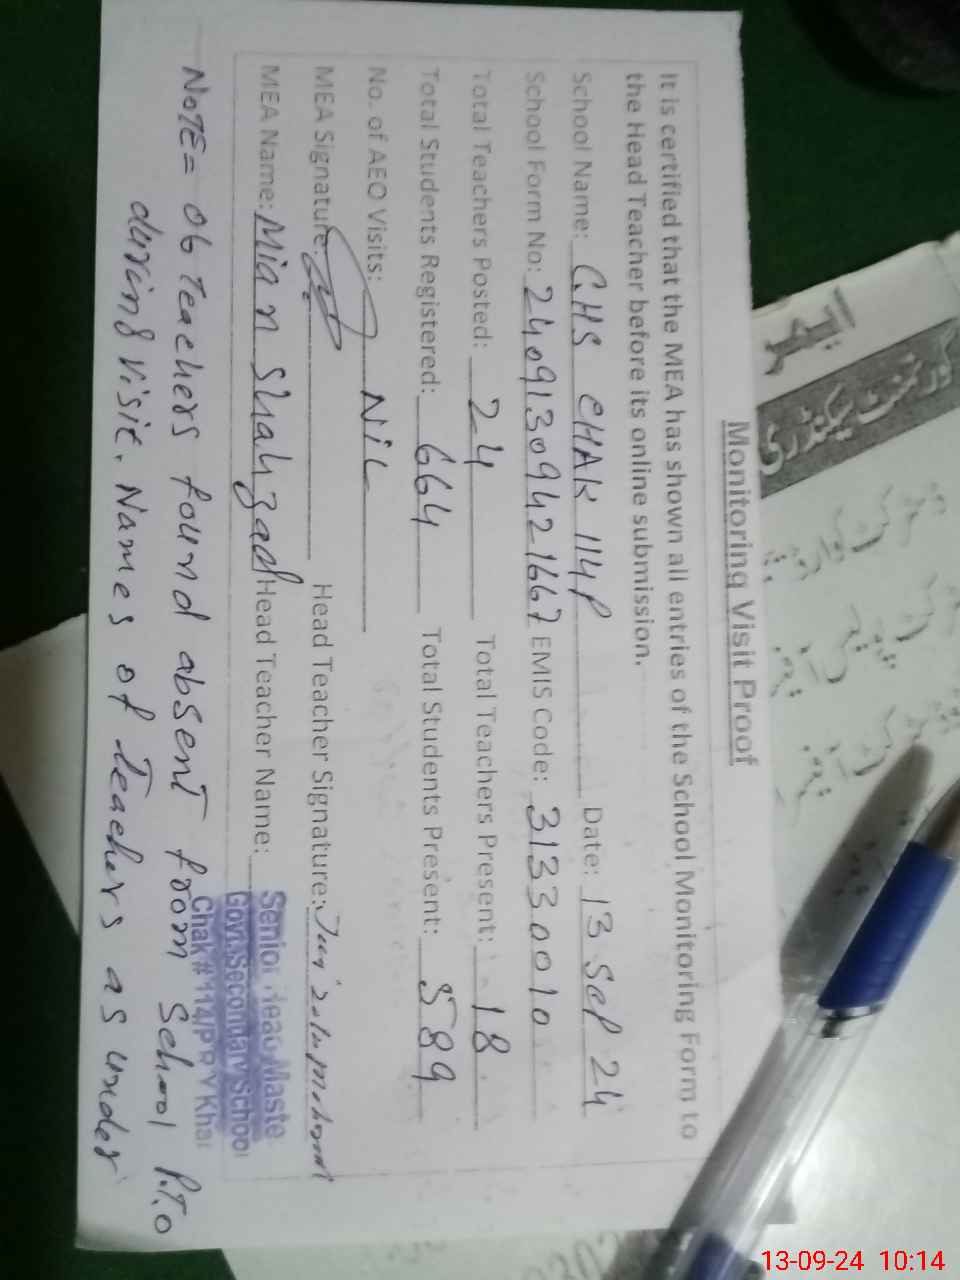 Monitoring Visit Proof
It is certified that the MEA has shown all entries of the School Monitoring Form to
the Head Teacher before its online submission.
School Name: GHS CHAK 114P Date: 13 SeP 24
School Form No: 24091309421667 EMIS Code: 31330010
Total Teachers Posted: 24 Total Teachers Present: 18
Total Students Registered: 664 Total Students Present: 589
No. of AEO Visits: NiL
MEA Signature: Head Teacher Signature:
MEA Name: Mian Shahzad Head Teacher Name:
Senior Head Maste
Govt.Secondary School
Chak# 114/P R Y Khan
NOTE= 06 Teachers found absent from School P.T.O
during visit. Names of Teachers as under
گورنمنٹ سیکنڈری
13-09-24 10:14